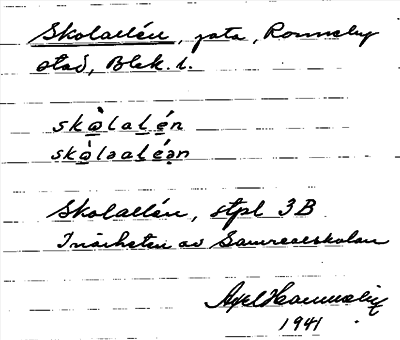 Skolallén, gata, Ronneby
stad, Blek. l.
skò̱lalé̱n
skò̱laalé̱an
Skolallén, stpl 3B
I närheten av Samrealskolan
Axel
1941